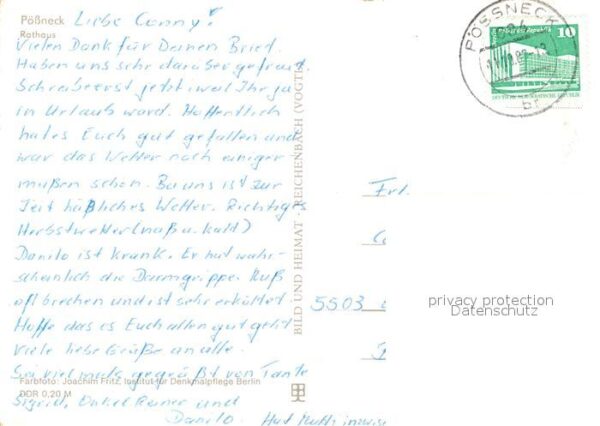 Pößneck
Rathaus
Liebe Conny!
Vielen Dank für Deinen Brief.
Haben uns sehr darüber gefreut.
Schreibe erst jetzt weil Ihr ja
in Urlaub ward. Hoffentlich
hat es Euch gut gefallen und
war das Wetter noch einiger-
maßen schön. Bei uns ist zur
Zeit häßliches Wetter. Richtiges
Herbstwetter (naß u. kalt)
Danilo ist krank. Er hat wahr-
scheinlich die Darmgrippe. Muß
oft brechen und ist sehr erkältet.
Hoffe das es Euch allen gut geht
Viele liebe Grüße an alle.
Sei vielmals gegrüßt von Tante
Sigrid, Onkel Rainer und
Danilo.
Farbfoto: Joachim Fritz, Institut für Denkmalpflege Berlin
DDR 0,20 M
BILD UND HEIMAT · REICHENBACH (VOGTL
PÖSSNECK
10
DEUTSCHE DEMOKRATISCHE REPUBLIK
Frl.
5503
privacy protection
Datenschutz